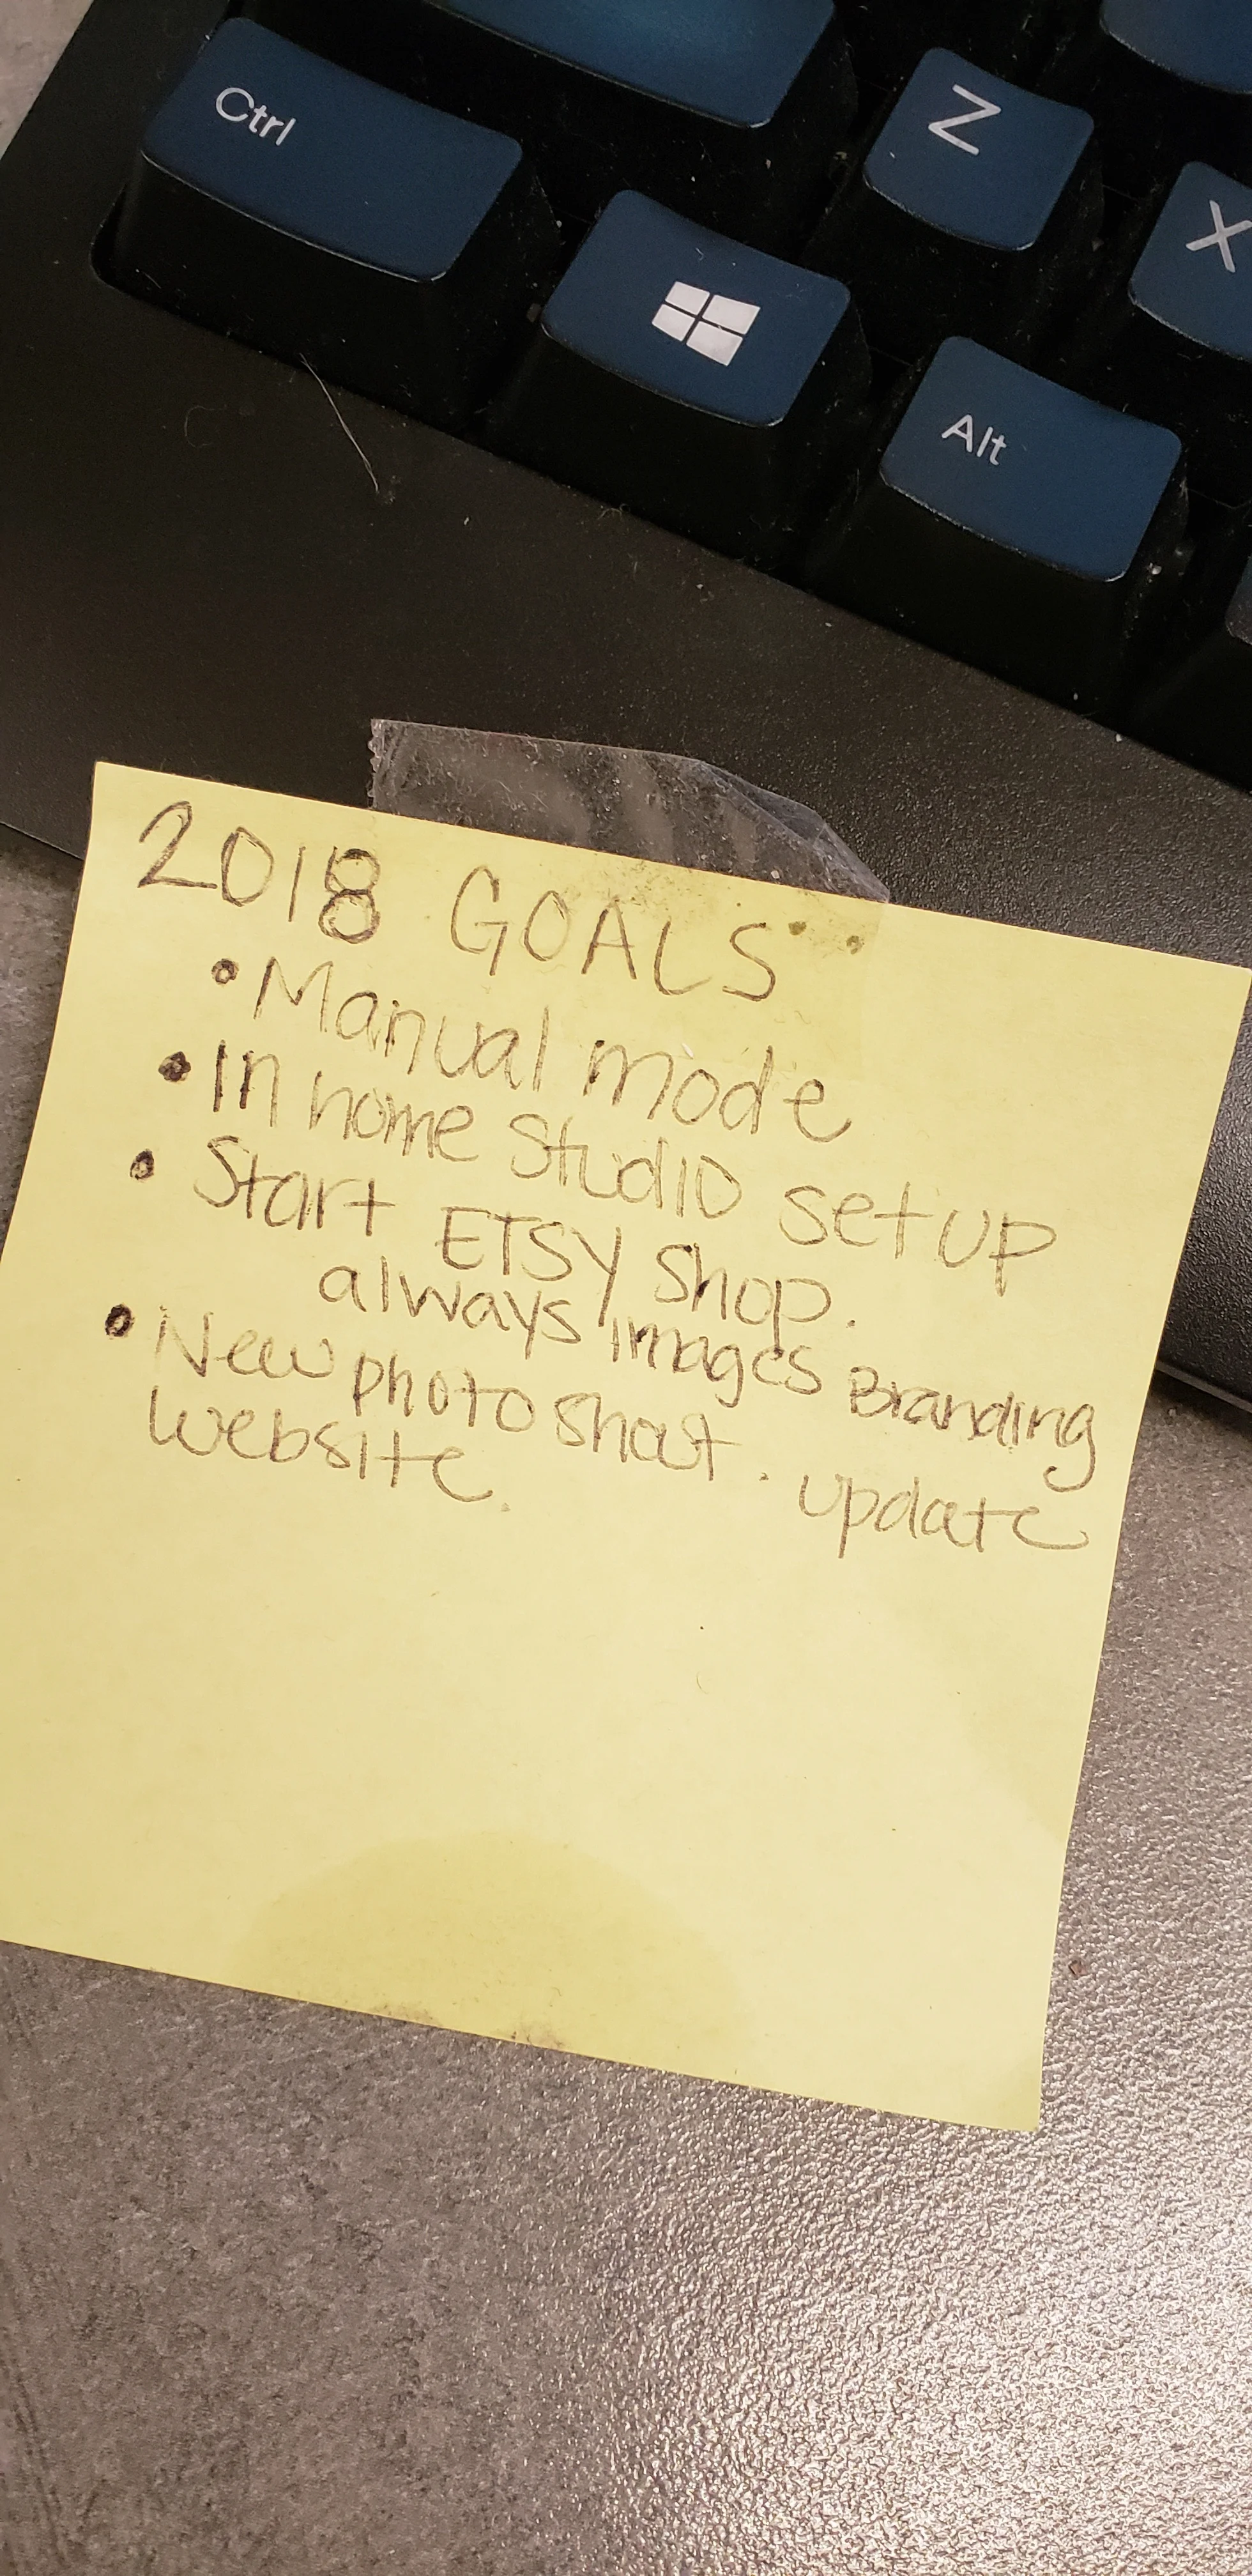 Ctrl
Z
X
Alt
2018 GOALS
• Manual mode
• In home Studio set up
• Start ETSY Shop.
always images Branding
• New photo shoot. update
website.